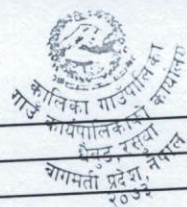 कालिका गाउँपालिका
गाउँ कार्यपालिकाको कार्यालय
रसुवा
बागमती प्रदेश, नेपाल
२०७३